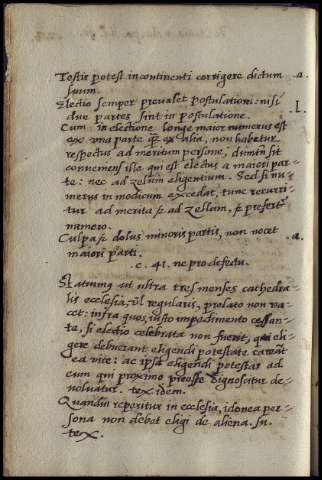 Testis potest incontinenti corrigere dictum .a.
suum.
Electio semper prevalet postulationi: nisi
due partes sint in postulatione. .I.
Cum in electione longe maior numerus est
ex una parte q̃ ex alia, non habetur
respectus ad meritum persone, dum̃ sit
conueniens ille qui est electus a maiori par-
te: nec ad zelum eligentium. Sed si nu-
merus in modicum excedat, tunc recurri-
tur ad merita & ad zelum, & prefert᷑
numero.
Culpa & dolus minoris partis, non nocet .a.
maiori parti.
c. 41. ne pro defectu.
Statuimus ut ultra tres menses cathedra-
lis ecclesia, ũl regularis, prelato non va-
cet: infra quos, iusto impedimento cessan-
te, si electio celebrata non fuerit, qui eli-
gere debuerant eligendi potestate careãt
ea vice: ac ipsa eligendi potestas ad
eum qui proximo preesse dignoscitur de-
voluatur. tex. idem.
Quandiu reperitur in ecclesia, idonea per-
sona non debet eligi de aliena. in
tex.